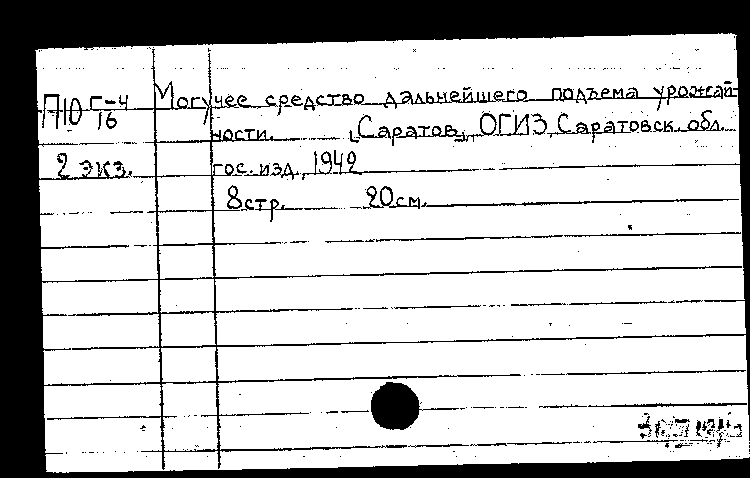 П10 Г-4/16 Могучее средство дальнейшего подъема урожай-
ности. [Саратов], ОГИЗ, Саратовск. обл.
2 экз. гос. изд., 1942
8 стр. 20 см.